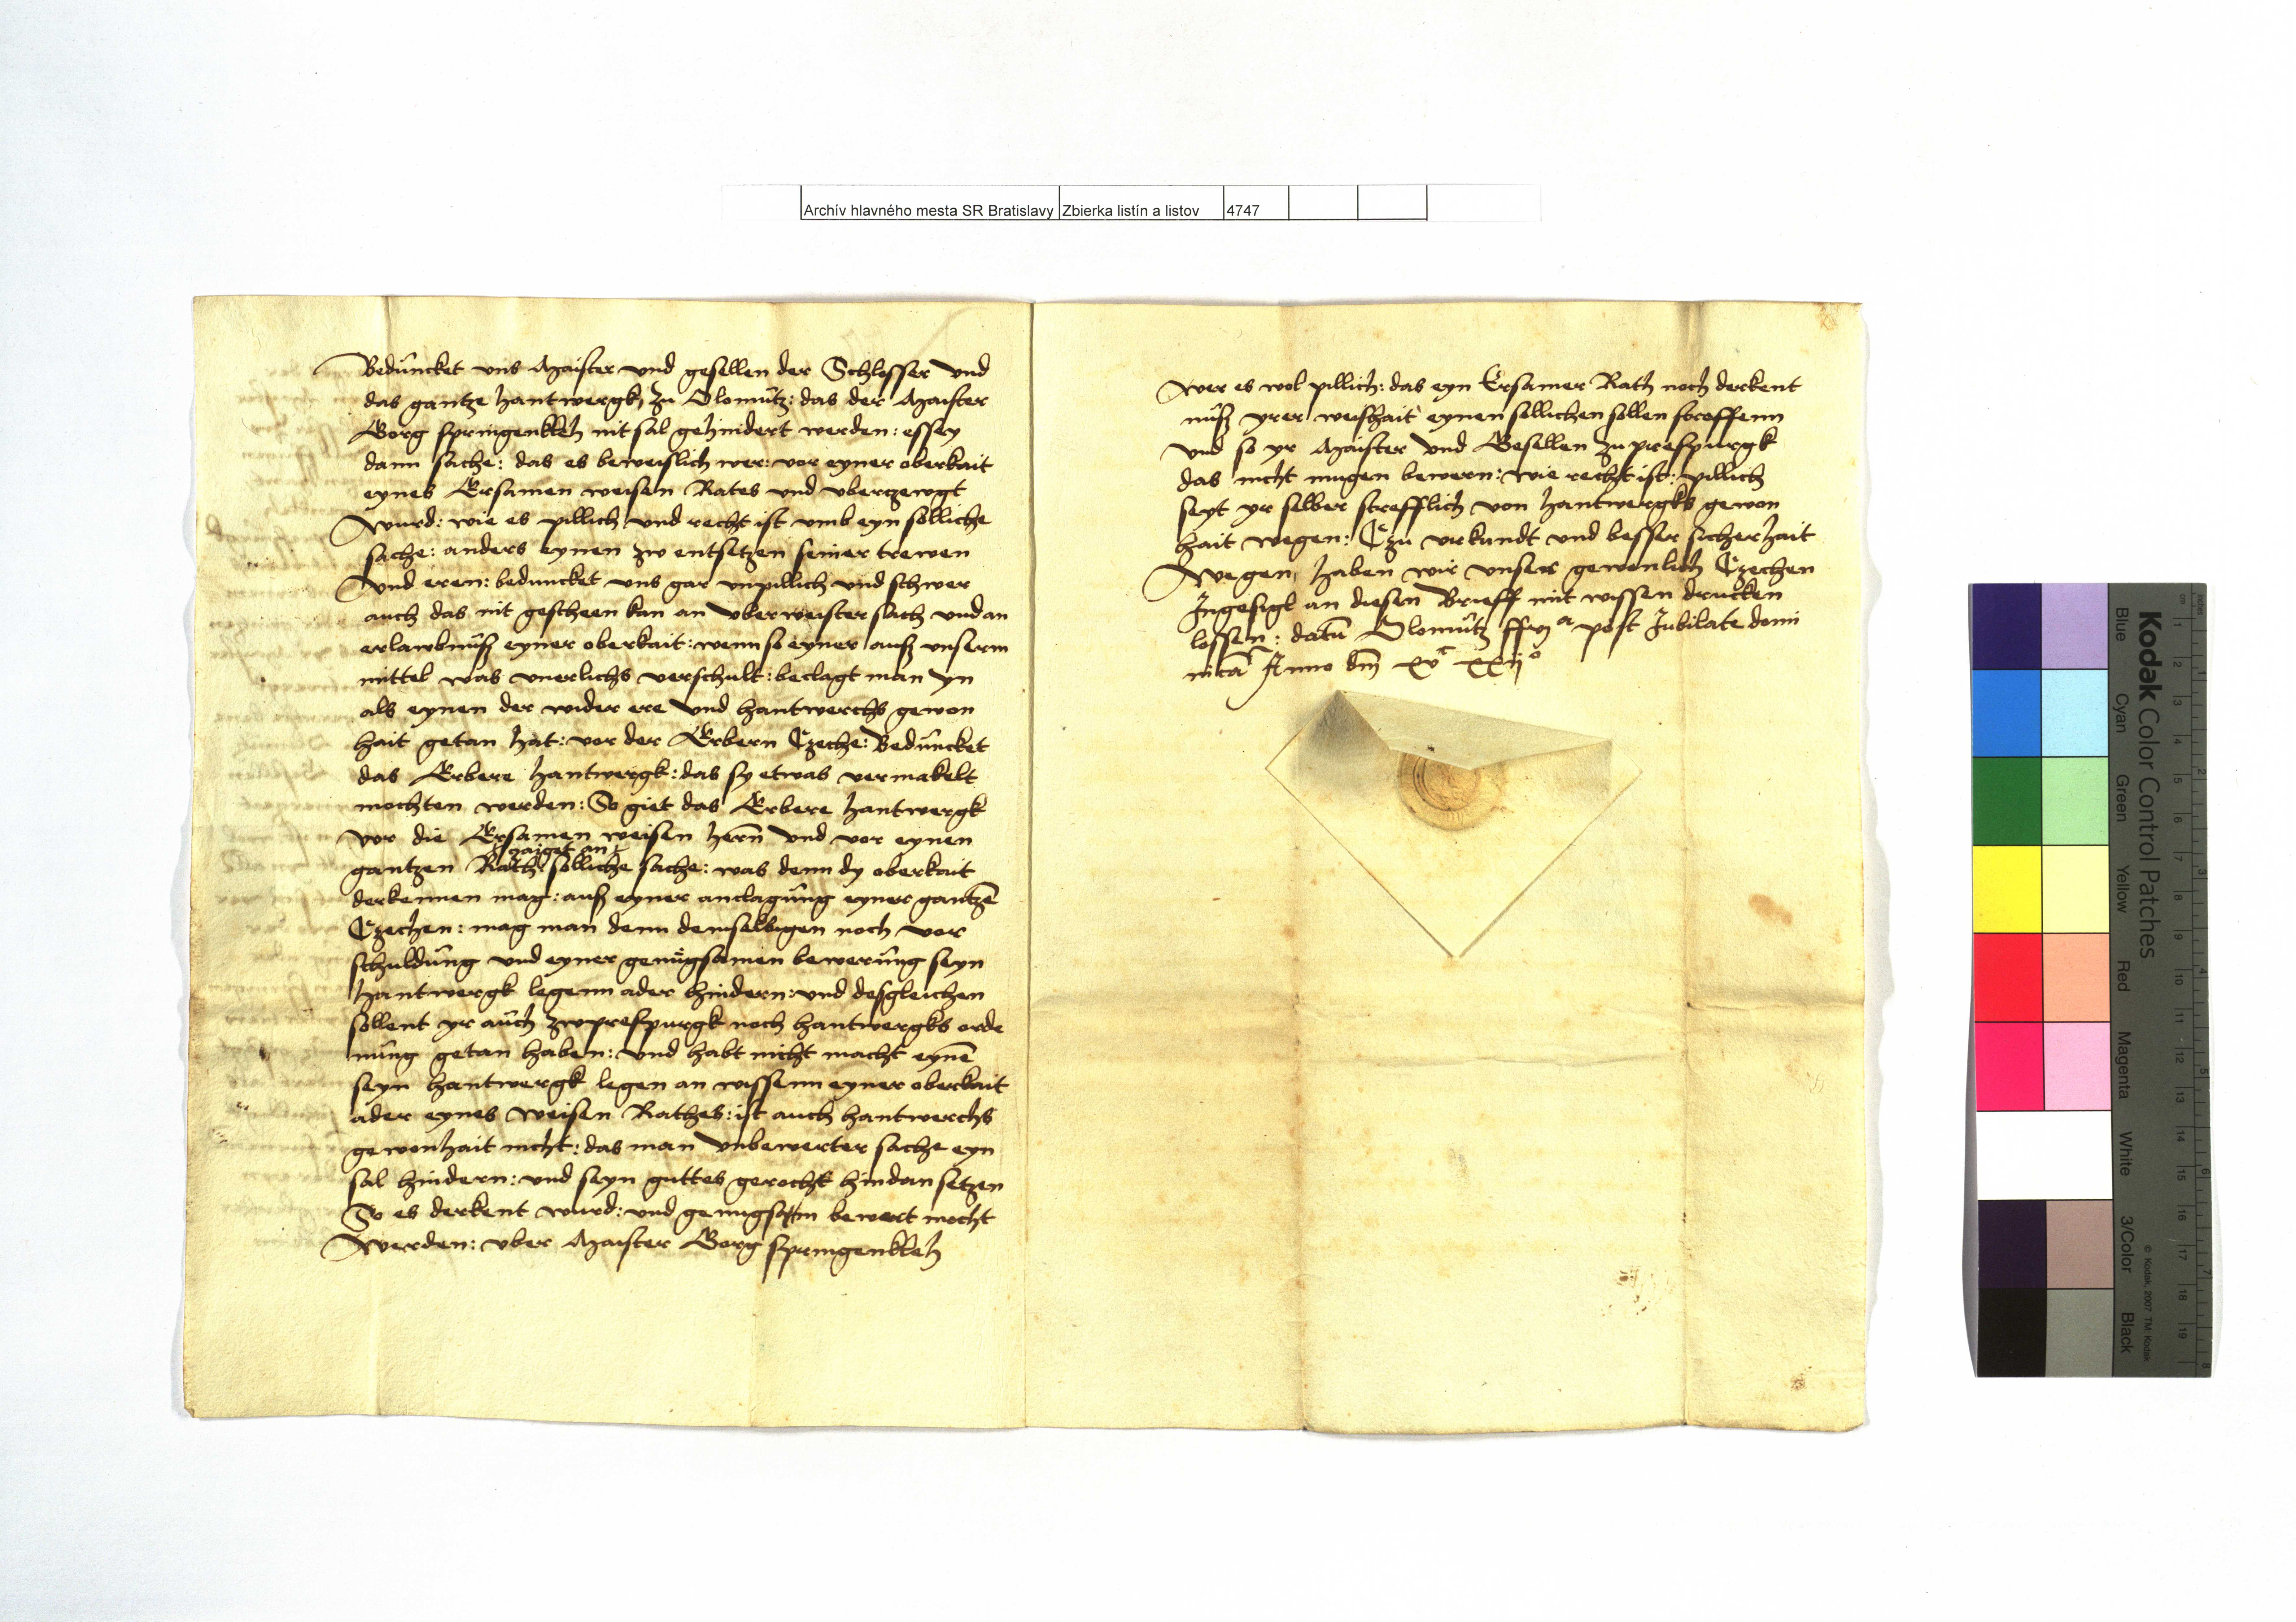 Archív hlavného mesta SR Bratislavy Zbierka listín a listov 4747
Beduncket uns Maister und gesellen der Schlosser und
das gantze hantwergk zu Olomutz: das der Maister
Gorg springenkleh nit sal gehindert werden: essey
dann sache: das es beweislich wer: vor eyner oberkait
eynes Ersamen weisen Rates und uberczewgt
wurd: wie es pillich und recht ist umb eyn solliche
sache: anders eynen zw entsetzen seiner trewen
und eren: beduncket uns gar unpillich und schwer
auch das nit gescheen kan an uberweister sach und an
erlawbnuß eyner oberkait: wenn so eyner auß unserm
mittel was unerlichs verschult: beclagt man yn
als eynen der wider ere und hantwerchs gewon
hait getan hat: vor der Erbern Czeche: Beduncket
das Erbere hantwergk: das sy etwas vermakelt
mochten werden: So giet das Erbere hantwergk
vor die Ersamen weisen hern̄ und vor eynen
zaiget an
gantzen Rath solliche sache: was denn dy oberkait
derkennen mag: auß eyner anclagung eyner gantzē
Czechen: mag man denn demselbigen noch vor
schuldung und eyner genugsamen bewerung seyn
hantwergk legenn ader hindern: und desgleichen
sollent yr auch zw prespurgk noch hantwergks orde
nung getan haben: und habt nicht macht eynē
seyn hantwergk legen an wissenn eyner oberkait
ader eynes weisen Rathes: ist auch hantwerchs
gewonhait nicht: das man unbewerter sache eyn
sal hindern: und seyn guttes gerocht hindan setzen
So es derkent wurd: und genugsam bewert mocht
werden: uber Maister Gorg springenkleh
wer es wol pillich: das eyn Ersamer Rath noch derkent
nuß yrer weishait eynen sollichen sollen
und so yr Maister und Gesellen zu prespurgk
das nicht mugen bewern: wie recht ist: pillich
seyt yr selber strefflich von hantwergks gewon
hait wegen: Czu urkundt und besser sicherhait
wegen, haben wir unser gewonlich Czechen
Ingesigl an diesen Brieff mit wissen drucken
lossen: datū Olomutz post Jubilate domi
nicā Anno dm̄ xvc xxijo
Kodak Color Control Patches
Blue Cyan Green Yellow Red Magenta White 3/Color Black
© Kodak, 2007 TM: Kodak
cm 1 2 3 4 5 6 7 8 9 10 11 12 13 14 15 16 17 18 19
inches 1 2 3 4 5 6 7 8